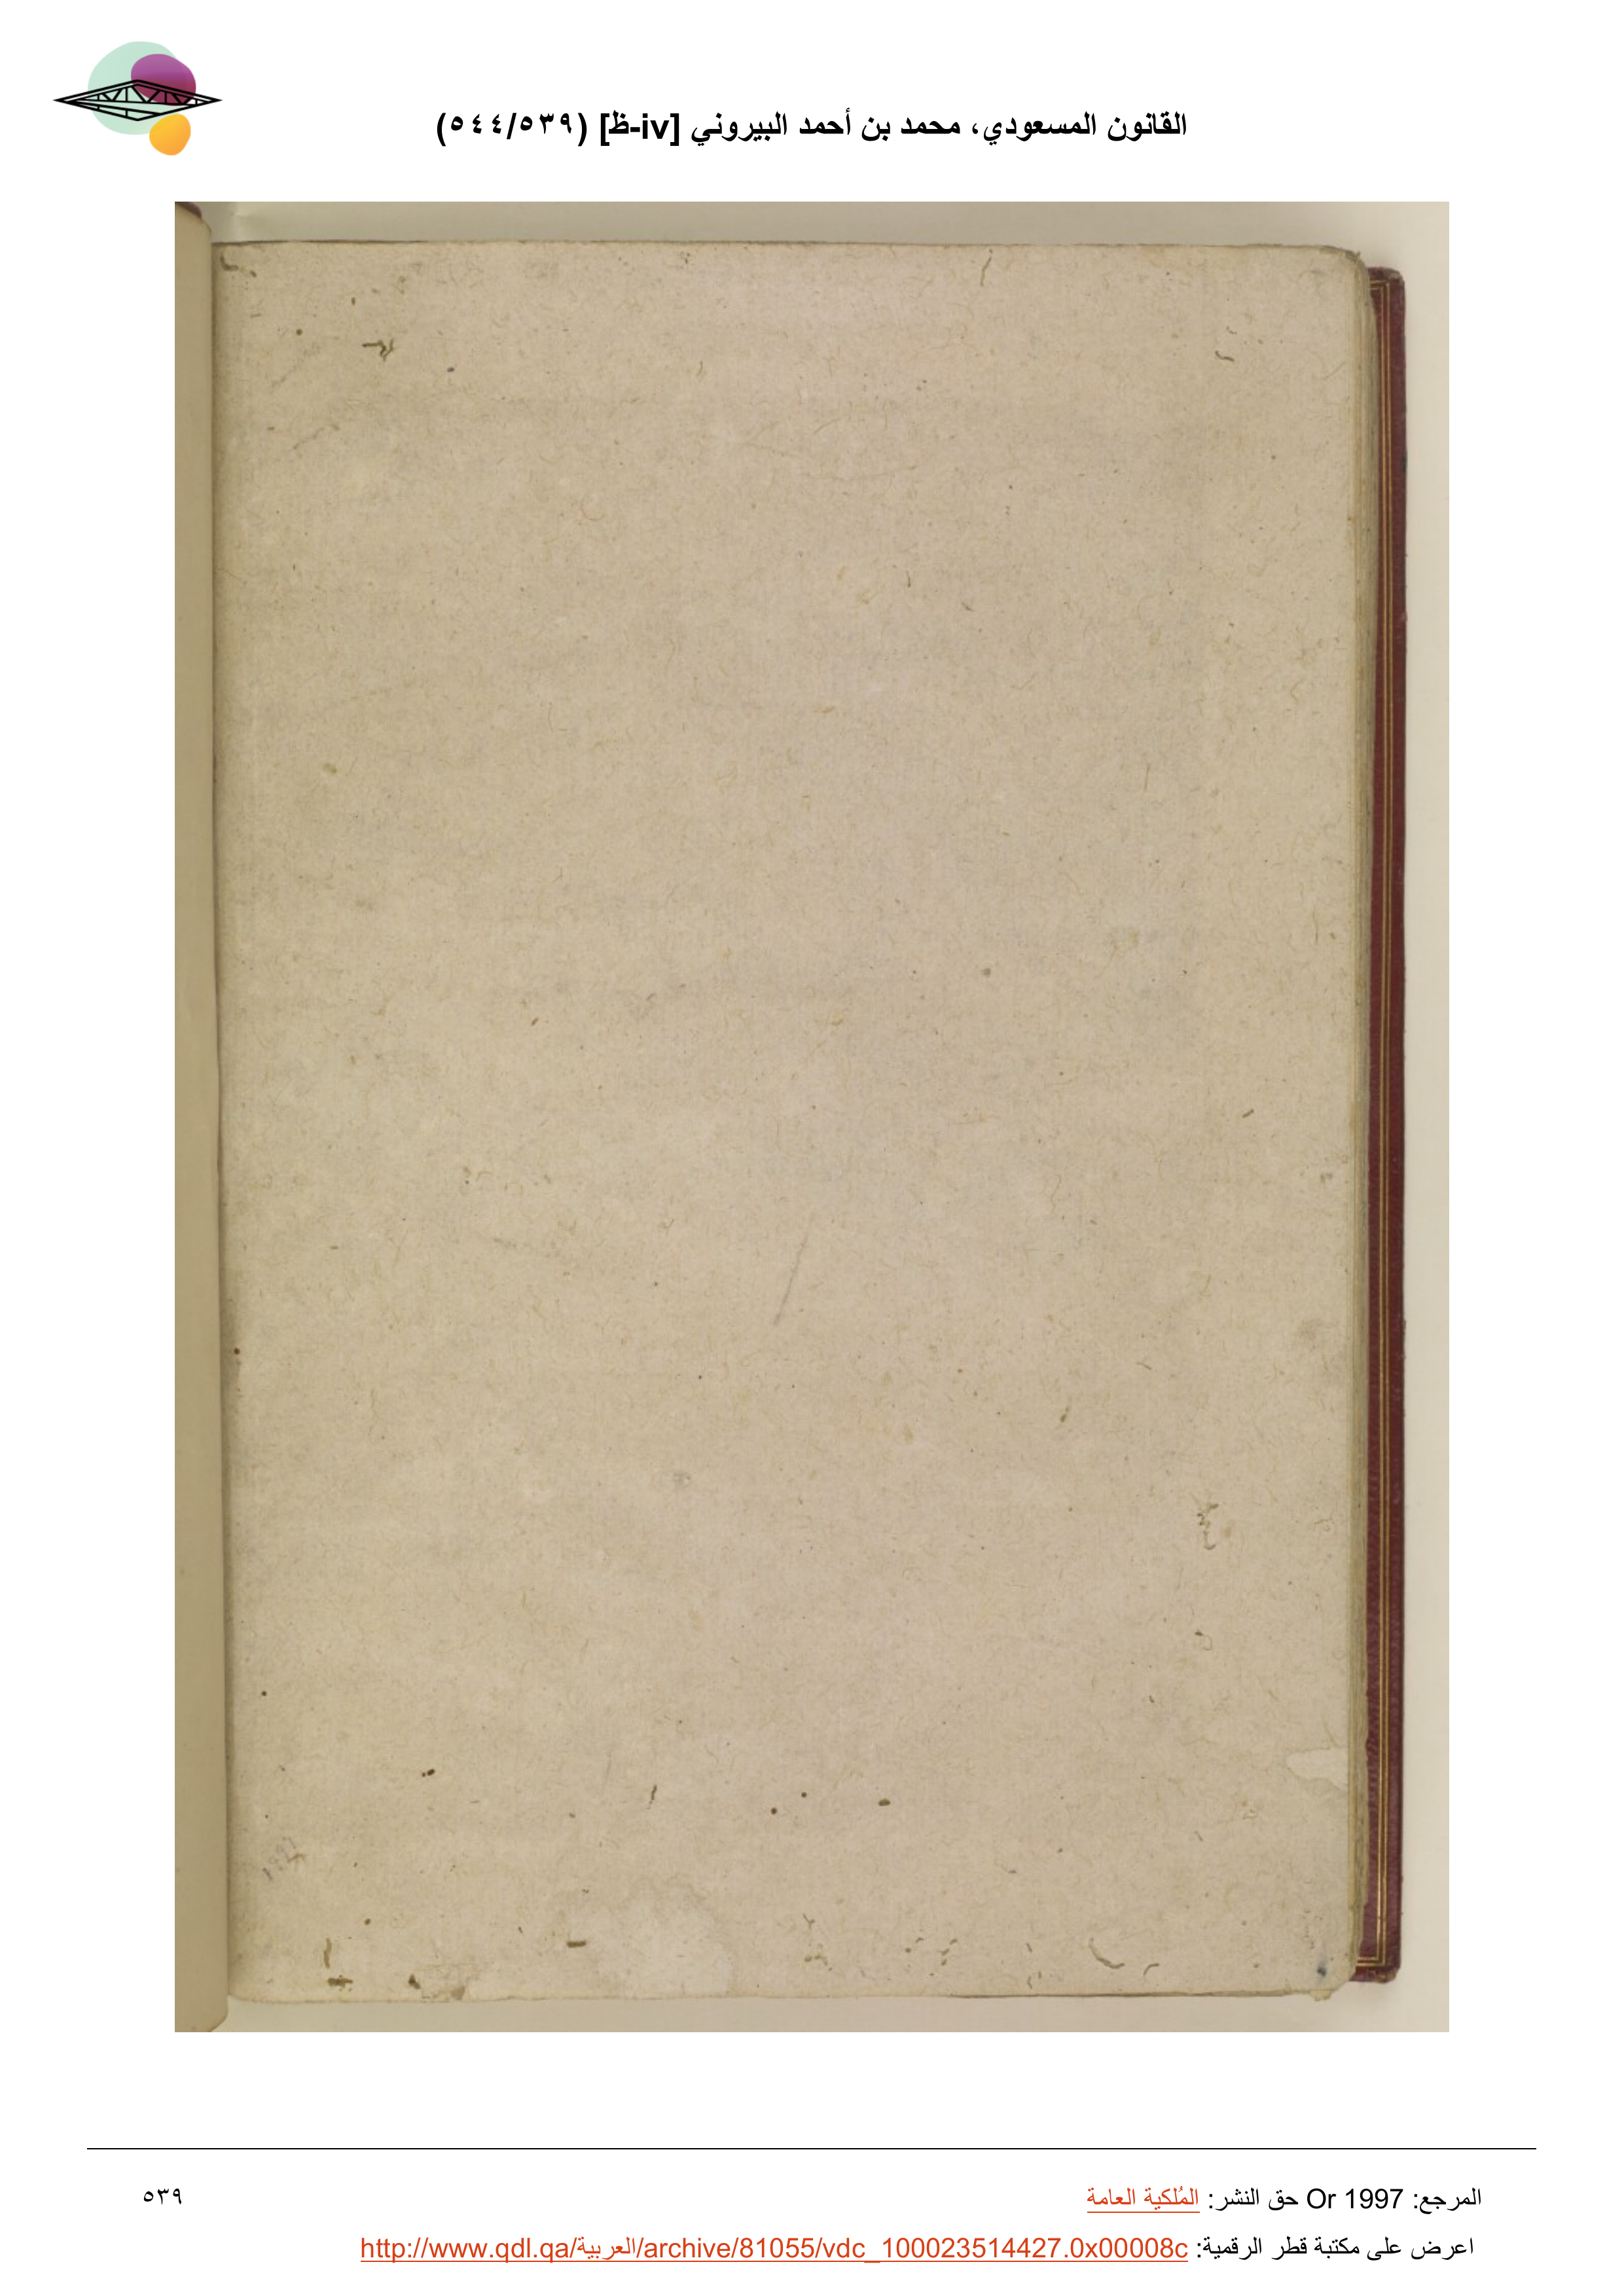 القانون المسعودي، محمد بن أحمد البيروني [iv-ظ] (٥٣٩/٥٤٤)
المرجع: Or 1997 حق النشر: المُلكية العامة
٥٣٩
اعرض على مكتبة قطر الرقمية: http://www.qdl.qa/العربية/archive/81055/vdc_100023514427.0x00008c